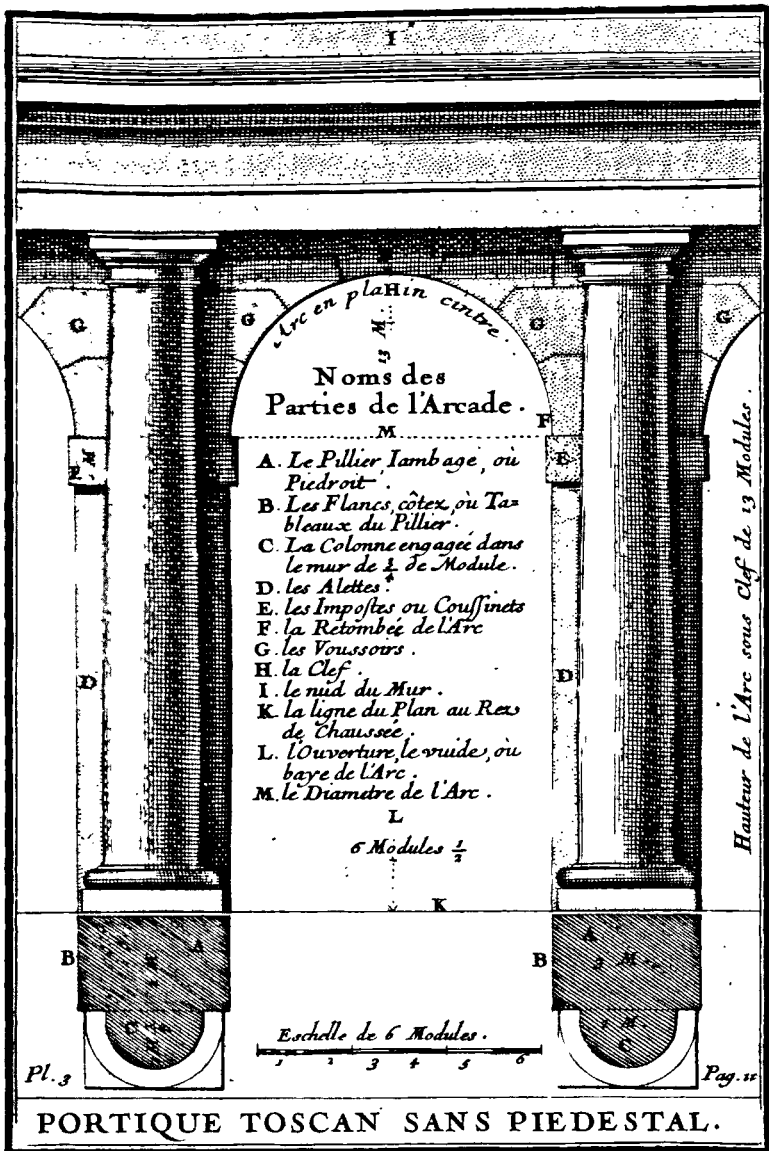 I
Arc en plaHin cintre.
13 M
G
G
G
G
Noms des
Parties de l'Arcade.
M
F
E
M
E
A. Le Pillier Iambage, où
Piedroit.
B. Les Flancs, côtez, où Ta=
bleaux du Pillier.
C. La Colonne engageé dans
le mur de 3/4 de Module.
D. les Alettes.
E. les Impostes ou Coussinets
F. la Retombeé de l'Arc
G. les Voussoirs.
H. la Clef.
I. le nud du Mur.
K. la ligne du Plan au Rez
de Chausseé.
L. l'Ouverture, le vuide, où
baye de l'Arc.
M. le Diametre de l'Arc.
D
D
Hauteur de l'Arc sous Clef de 13 Modules.
L
6 Modules 1/2
K
B
A
B
A
3 M.
C
2 M.
C
Eschelle de 6 Modules.
1 2 3 4 5 6
Pl. 3
Pag. 11
PORTIQUE TOSCAN SANS PIEDESTAL.